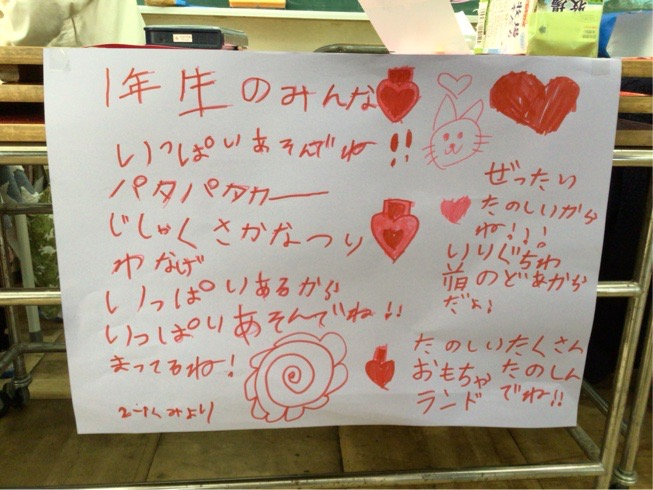 1年生のみんな
いっぱいあそんでね!!
パタパタカー
じしゃくさかなつり
わなげ
いっぱいあるから
いっぱいあそんでね!!
まってるね!
2-1くみより
ぜったい
たのしいから
ね!!!
いりぐちわ
前のどあから
だよ!
たのしいたくさん
おもちゃ たのしん
ランド でね!!
牧場